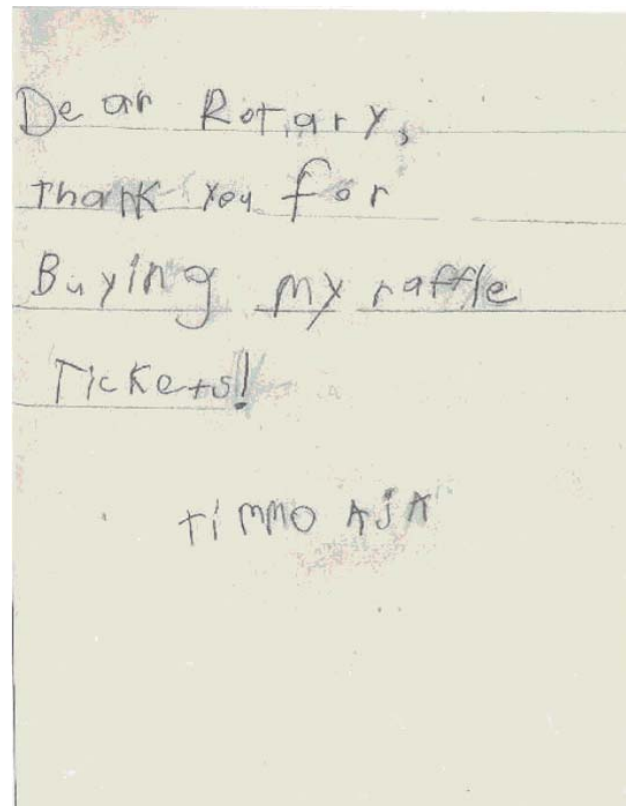 Dear Rotary,
Thank you for
Buying my raffle
Tickets!
Timmo AjA